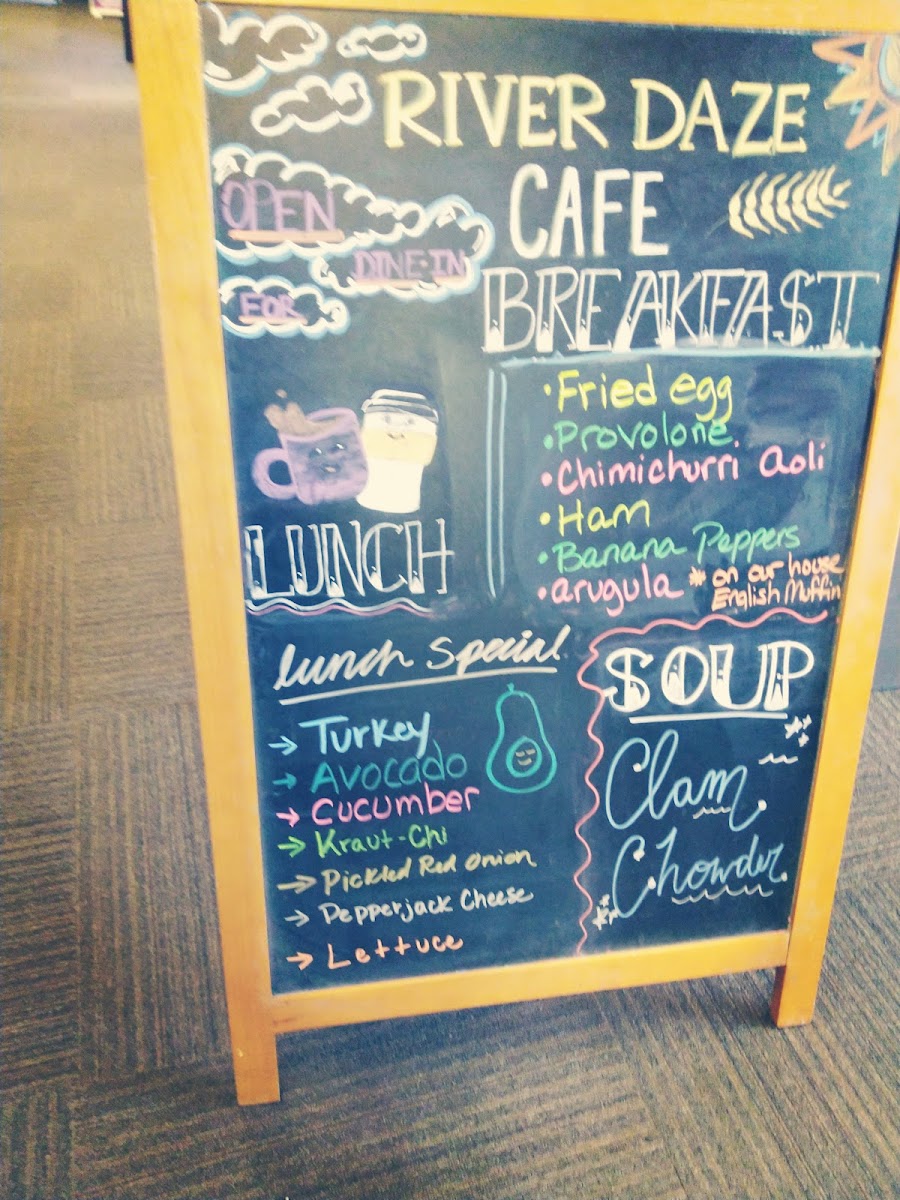 RIVER DAZE
CAFE
OPEN
DINE-IN
FOR
BREAKFAST
• Fried egg
• Provolone.
• Chimichurri aoli
• Ham
• Banana Peppers
• arugula * on our house
English Muffin
LUNCH
lunch special
→ Turkey
→ Avocado
→ Cucumber
→ Kraut-Chi
→ Pickled Red onion
→ Pepperjack Cheese
→ Lettuce
SOUP
Clam
Chowder